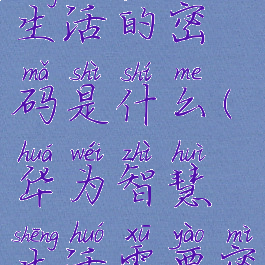 生活的密
mǎ shì shí me
码是什么(
huá wéi zhì huì
华为智慧
shēng huó xū yào mì
生活需要密